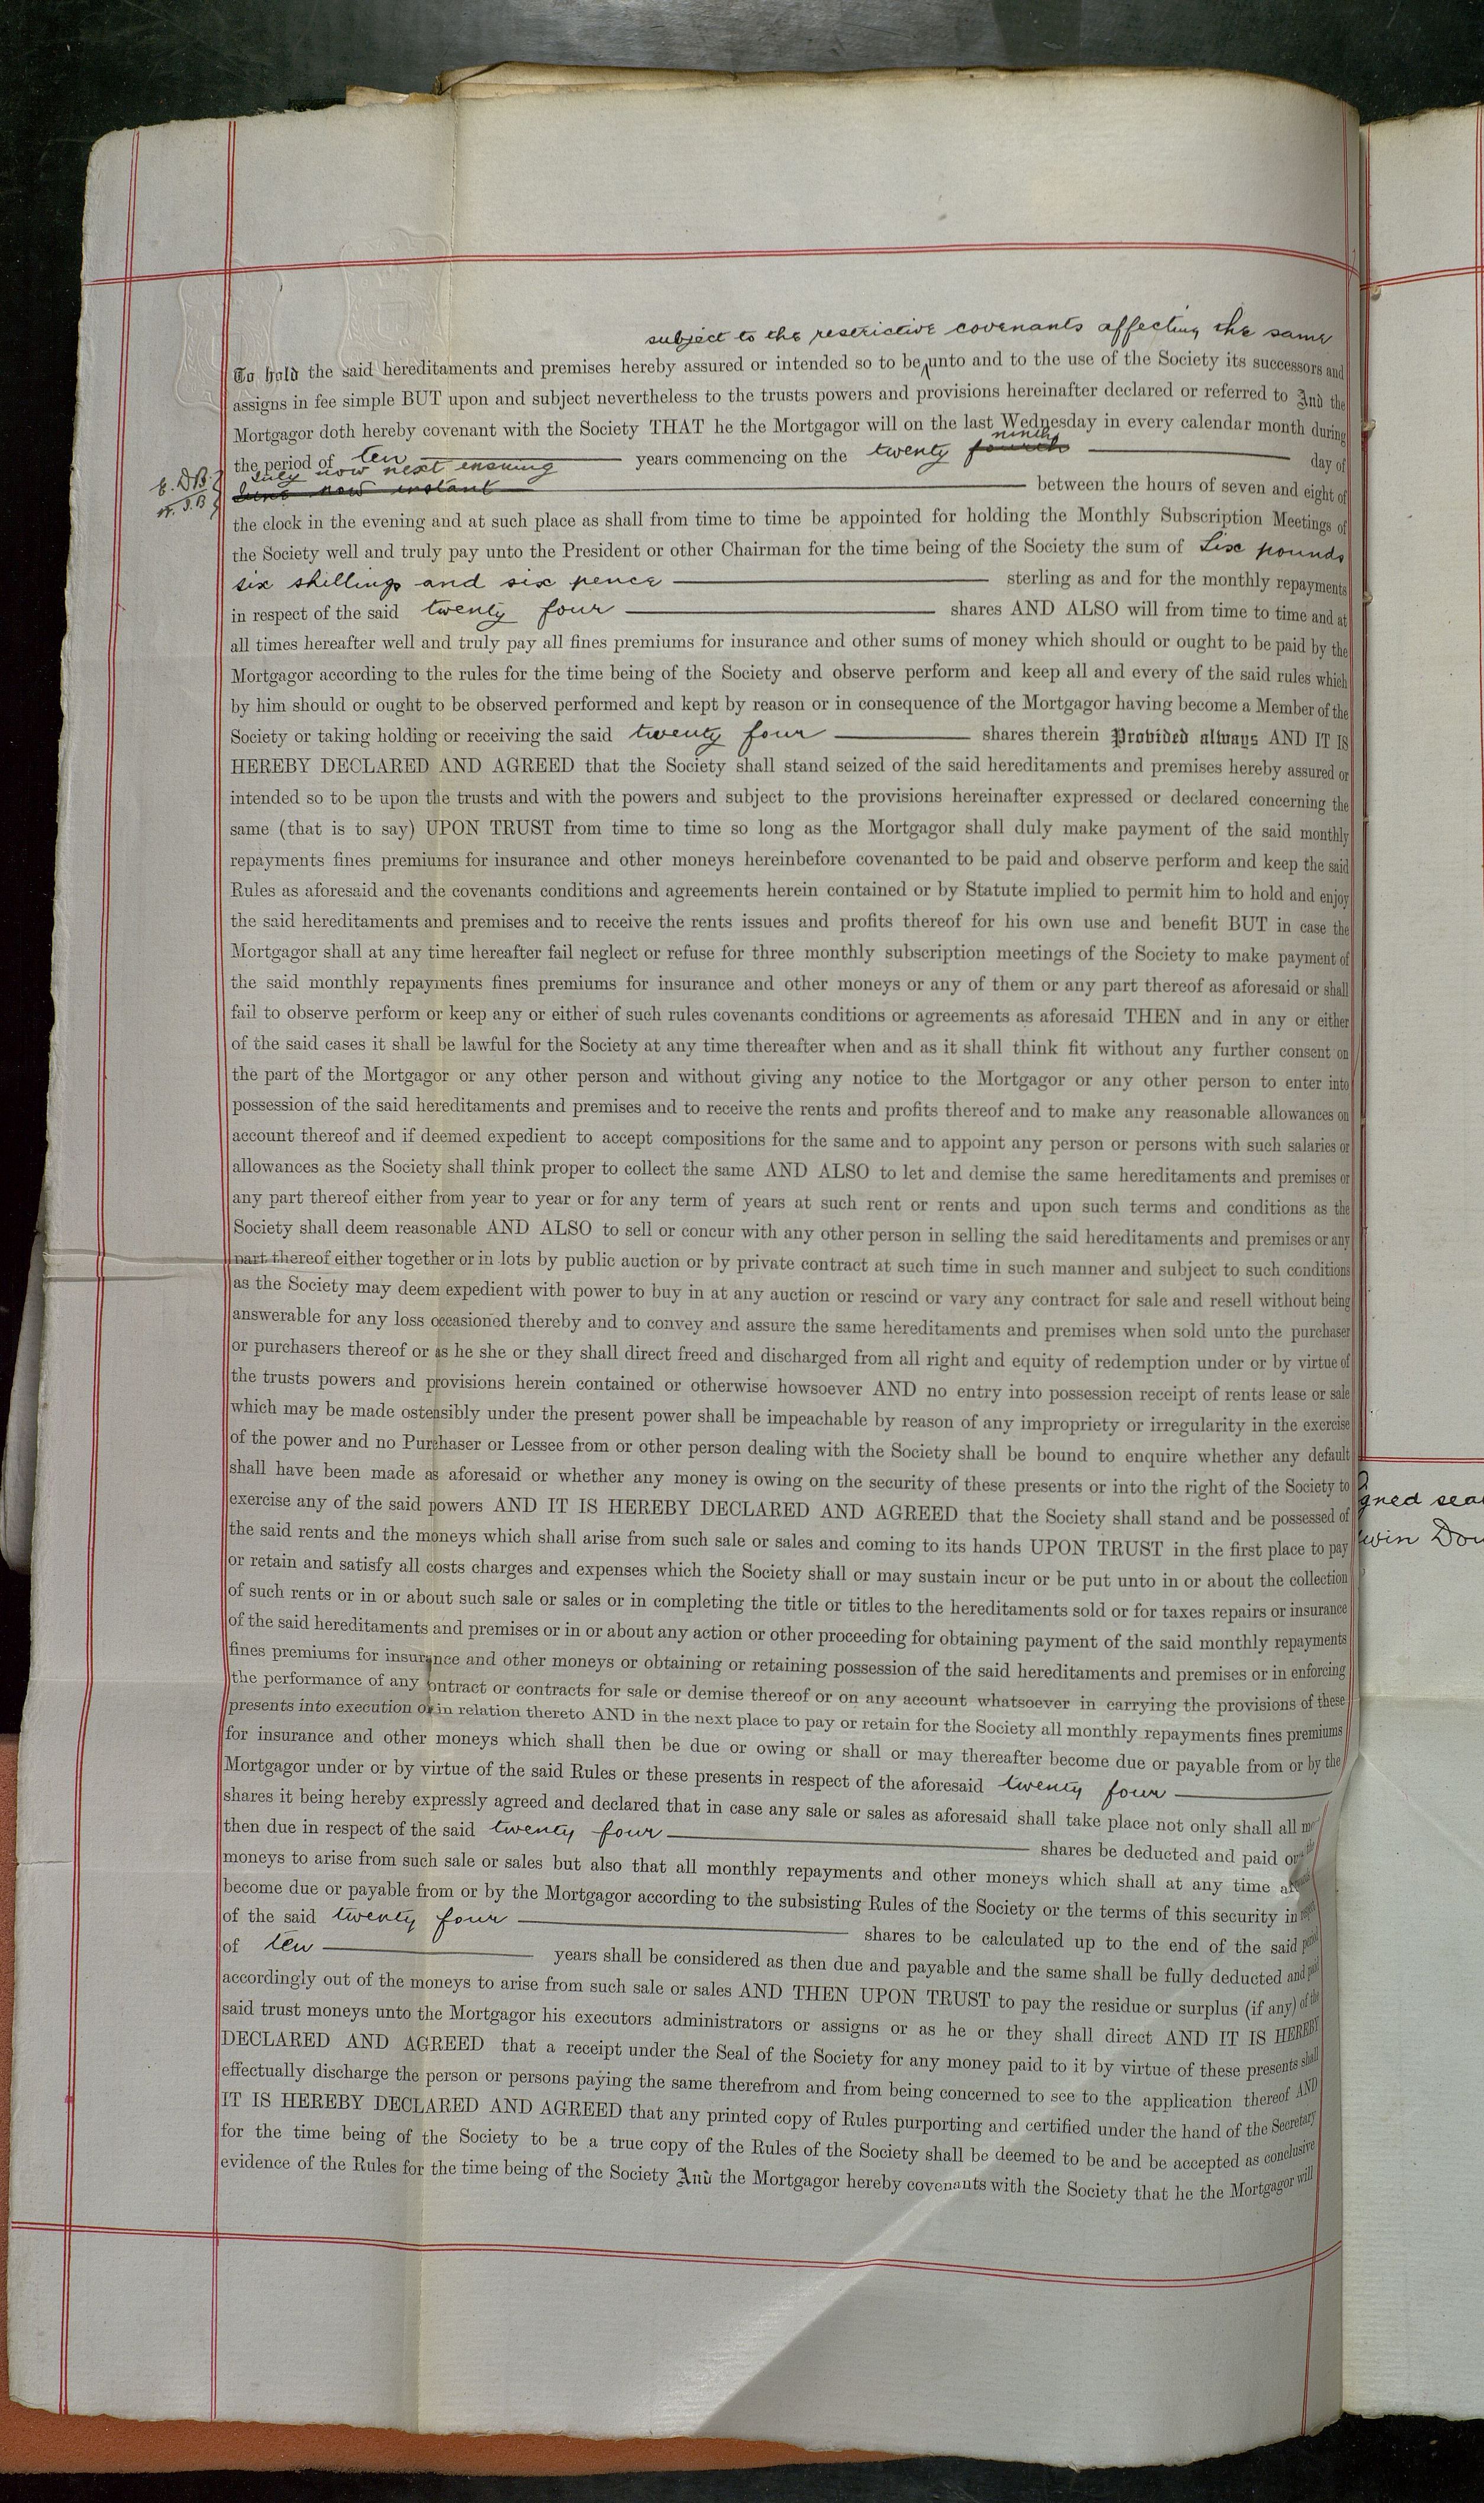 subject to the restrictive covenants affecting the same
To hold the said hereditaments and premises hereby assured or intended so to be unto and to the use of the Society its successors and
assigns in fee simple BUT upon and subject nevertheless to the trusts powers and provisions hereinafter declared or referred to And the
Mortgagor doth hereby covenant with the Society THAT he the Mortgagor will on the last Wednesday in every calendar month during
ninth
the period of ten years commencing on the twenty fourth day of
July now next ensuing
E. D B.
June now instant between the hours of seven and eight of
the clock in the evening and at such place as shall from time to time be appointed for holding the Monthly Subscription Meetings of
the Society well and truly pay unto the President or other Chairman for the time being of the Society the sum of Six pounds
six shillings and six pence sterling as and for the monthly repayments
in respect of the said twenty four shares AND ALSO will from time to time and at
all times hereafter well and truly pay all fines premiums for insurance and other sums of money which should or ought to be paid by the
Mortgagor according to the rules for the time being of the Society and observe perform and keep all and every of the said rules which
by him should or ought to be observed performed and kept by reason or in consequence of the Mortgagor having become a Member of the
Society or taking holding or receiving the said twenty four shares therein Provided always AND IT IS
HEREBY DECLARED AND AGREED that the Society shall stand seized of the said hereditaments and premises hereby assured or
intended so to be upon the trusts and with the powers and subject to the provisions hereinafter expressed or declared concerning the
same (that is to say) UPON TRUST from time to time so long as the Mortgagor shall duly make payment of the said monthly
repayments fines premiums for insurance and other moneys hereinbefore covenanted to be paid and observe perform and keep the said
Rules as aforesaid and the covenants conditions and agreements herein contained or by Statute implied to permit him to hold and enjoy
the said hereditaments and premises and to receive the rents issues and profits thereof for his own use and benefit BUT in case the
Mortgagor shall at any time hereafter fail neglect or refuse for three monthly subscription meetings of the Society to make payment of
the said monthly repayments fines premiums for insurance and other moneys or any of them or any part thereof as aforesaid or shall
fail to observe perform or keep any or either of such rules covenants conditions or agreements as aforesaid THEN and in any or either
of the said cases it shall be lawful for the Society at any time thereafter when and as it shall think fit without any further consent on
the part of the Mortgagor or any other person and without giving any notice to the Mortgagor or any other person to enter into
possession of the said hereditaments and premises and to receive the rents and profits thereof and to make any reasonable allowances on
account thereof and if deemed expedient to accept compositions for the same and to appoint any person or persons with such salaries or
allowances as the Society shall think proper to collect the same AND ALSO to let and demise the same hereditaments and premises or
any part thereof either from year to year or for any term of years at such rent or rents and upon such terms and conditions as the
Society shall deem reasonable AND ALSO to sell or concur with any other person in selling the said hereditaments and premises or any
part thereof either together or in lots by public auction or by private contract at such time in such manner and subject to such conditions
as the Society may deem expedient with power to buy in at any auction or rescind or vary any contract for sale and resell without being
answerable for any loss occasioned thereby and to convey and assure the same hereditaments and premises when sold unto the purchaser
or purchasers thereof or as he she or they shall direct freed and discharged from all right and equity of redemption under or by virtue of
the trusts powers and provisions herein contained or otherwise howsoever AND no entry into possession receipt of rents lease or sale
which may be made ostensibly under the present power shall be impeachable by reason of any impropriety or irregularity in the exercise
of the power and no Purchaser or Lessee from or other person dealing with the Society shall be bound to enquire whether any default
shall have been made as aforesaid or whether any money is owing on the security of these presents or into the right of the Society to
exercise any of the said powers AND IT IS HEREBY DECLARED AND AGREED that the Society shall stand and be possessed of
the said rents and the moneys which shall arise from such sale or sales and coming to its hands UPON TRUST in the first place to pay
or retain and satisfy all costs charges and expenses which the Society shall or may sustain incur or be put unto in or about the collection
of such rents or in or about such sale or sales or in completing the title or titles to the hereditaments sold or for taxes repairs or insurance
of the said hereditaments and premises or in or about any action or other proceeding for obtaining payment of the said monthly repayments
fines premiums for insurance and other moneys or obtaining or retaining possession of the said hereditaments and premises or in enforcing
the performance of any ontract or contracts for sale or demise thereof or on any account whatsoever in carrying the provisions of these
presents into execution or in relation thereto AND in the next place to pay or retain for the Society all monthly repayments fines premiums
for insurance and other moneys which shall then be due or owing or shall or may thereafter become due or payable from or by the
Mortgagor under or by virtue of the said Rules or these presents in respect of the aforesaid twenty four
shares it being hereby expressly agreed and declared that in case any sale or sales as aforesaid shall take place not only shall all
then due in respect of the said twenty four shares be deducted and paid
moneys to arise from such sale or sales but also that all monthly repayments and other moneys which shall at any time
become due or payable from or by the Mortgagor according to the subsisting Rules of the Society or the terms of this security in respect
of the said twenty four shares to be calculated up to the end of the said period
of ten years shall be considered as then due and payable and the same shall be fully deducted and paid
accordingly out of the moneys to arise from such sale or sales AND THEN UPON TRUST to pay the residue or surplus (if any) of the
said trust moneys unto the Mortgagor his executors administrators or assigns or as he or they shall direct AND IT IS HEREBY
DECLARED AND AGREED that a receipt under the Seal of the Society for any money paid to it by virtue of these presents shall
effectually discharge the person or persons paying the same therefrom and from being concerned to see to the application thereof AND
IT IS HEREBY DECLARED AND AGREED that any printed copy of Rules purporting and certified under the hand of the Secretary
for the time being of the Society to be a true copy of the Rules of the Society shall be deemed to be and be accepted as conclusive
evidence of the Rules for the time being of the Society And the Mortgagor hereby covenants with the Society that he the Mortgagor will
gned sea
win Dou